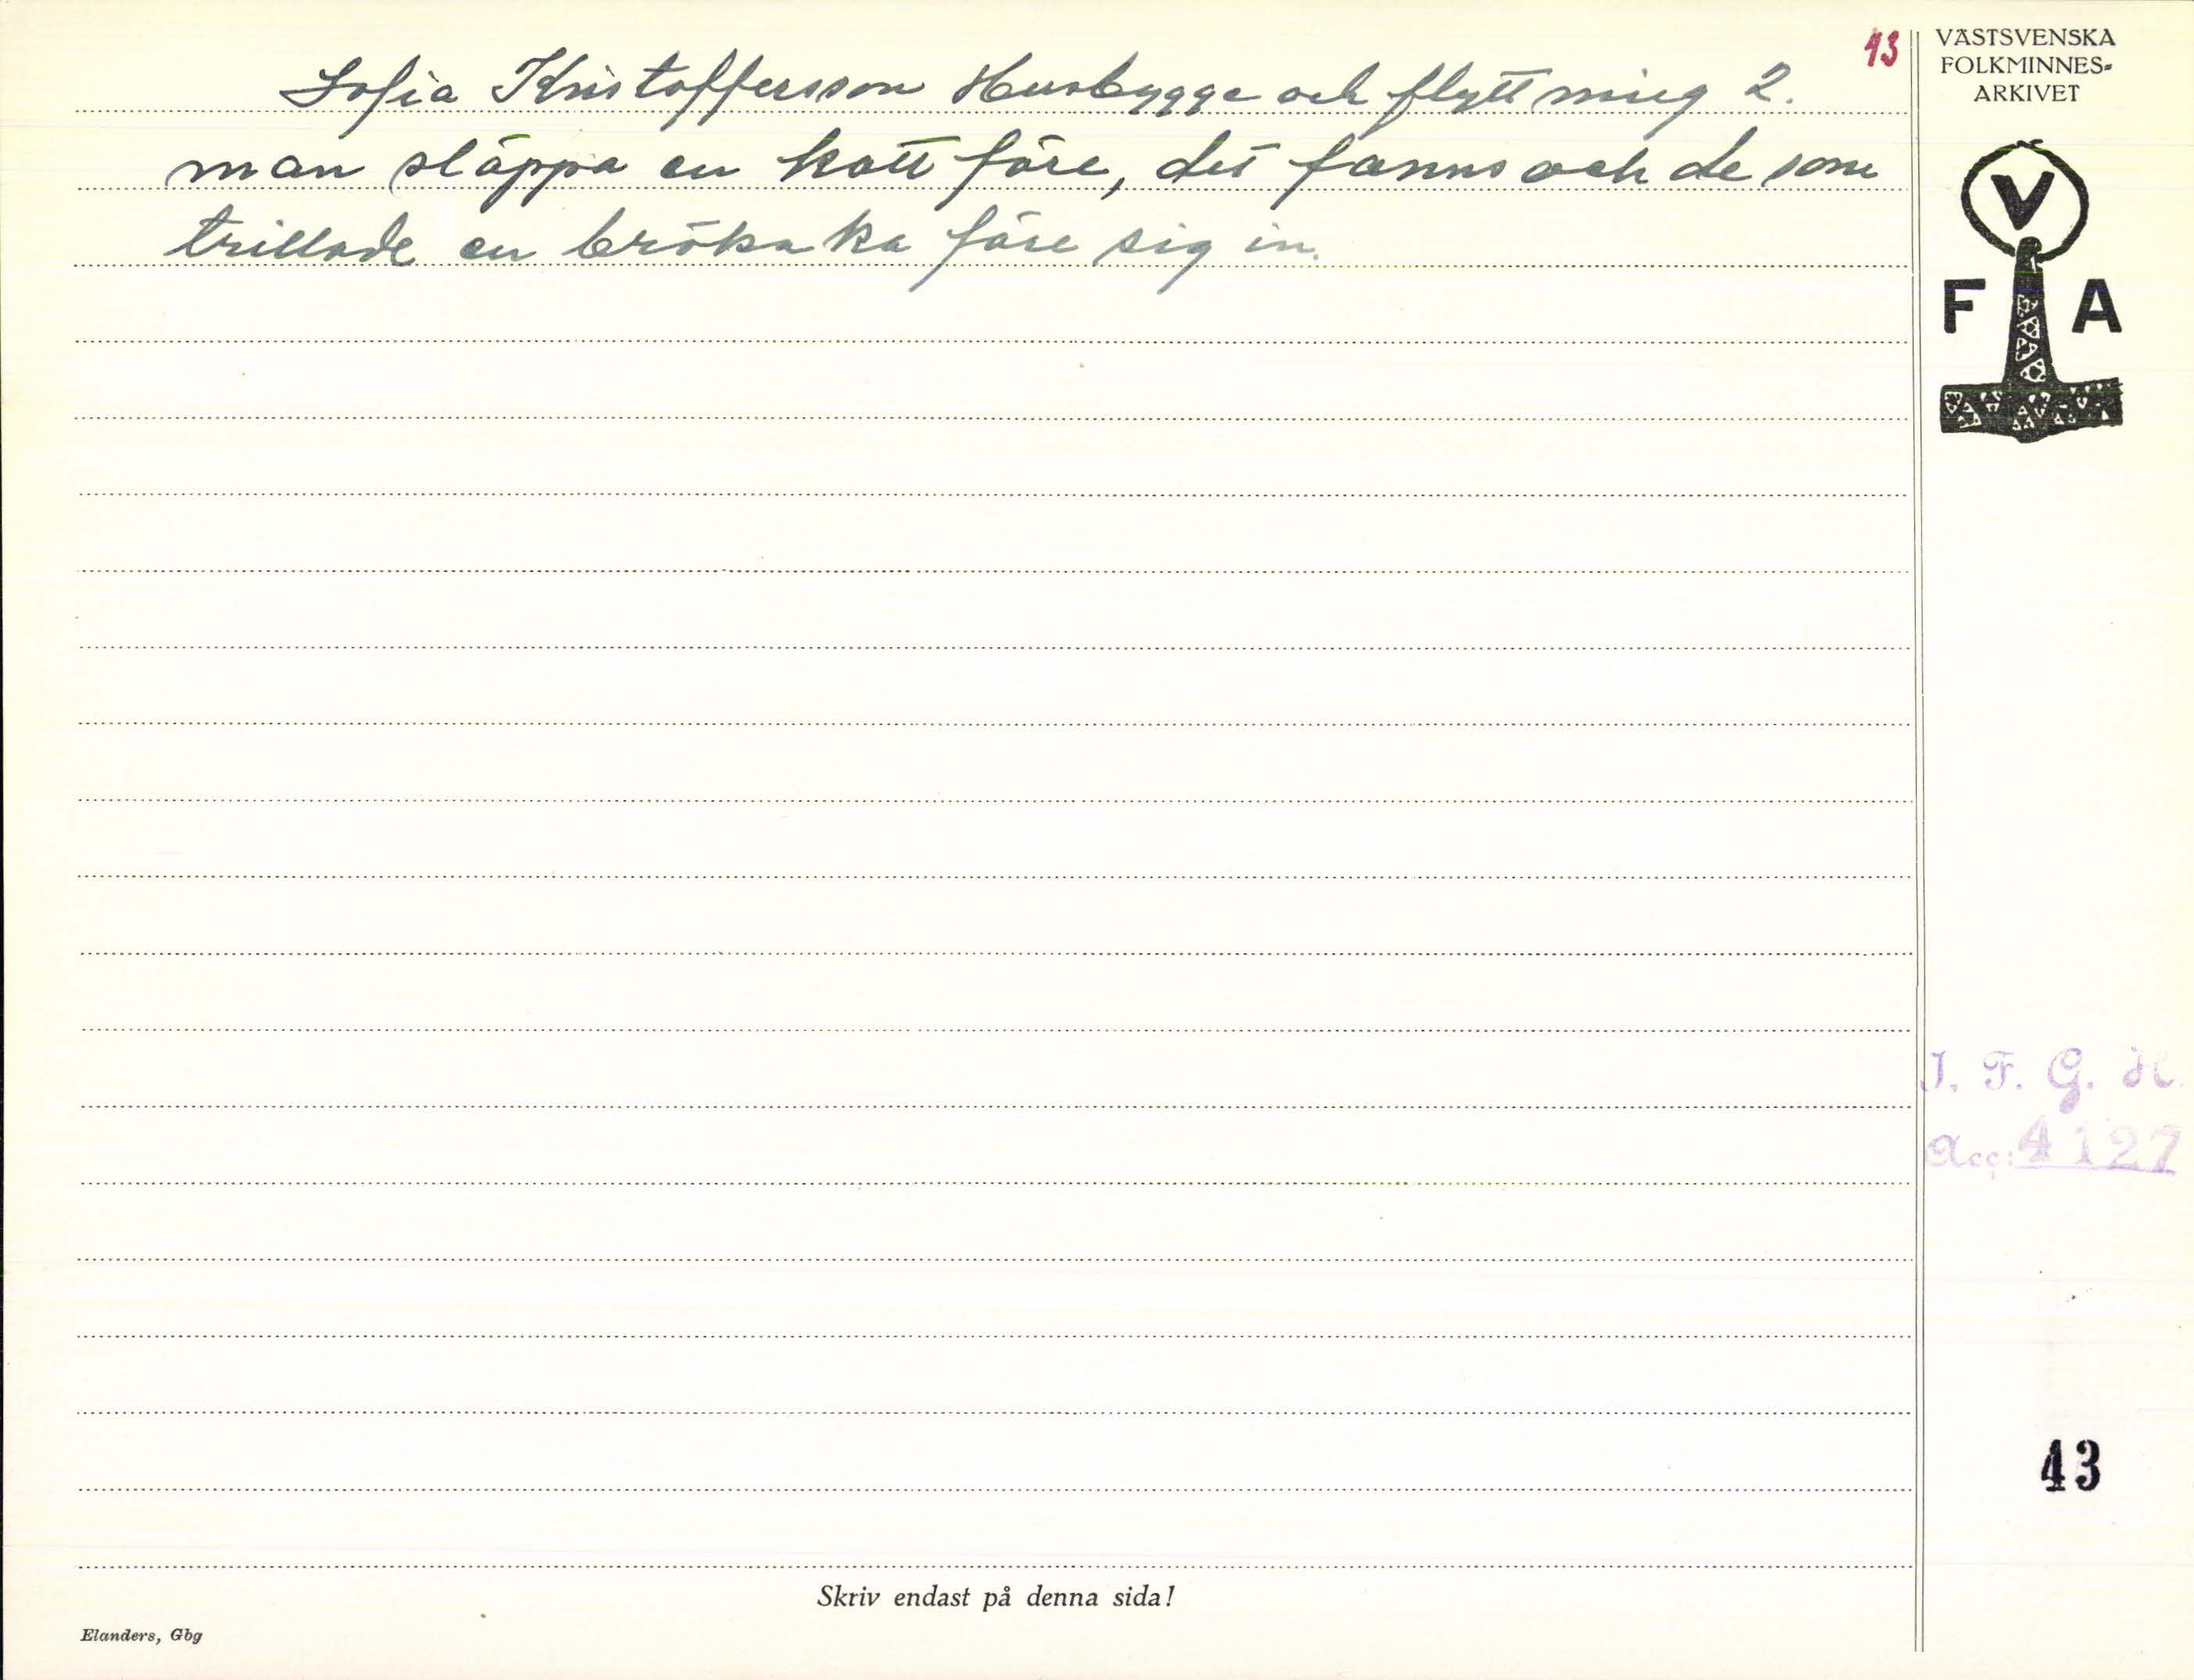 43
Sofia Kristoffersson Husbygge och flyttning 2.
man släppa en katt före, det fanns och de som
trillade en brökaka före sig in.
VÄSTSVENSKA
FOLKMINNES-
ARKIVET
V
F A
I. F. G. H.
Acc: 4127
43
Skriv endast på denna sida!
Elanders, Gbg